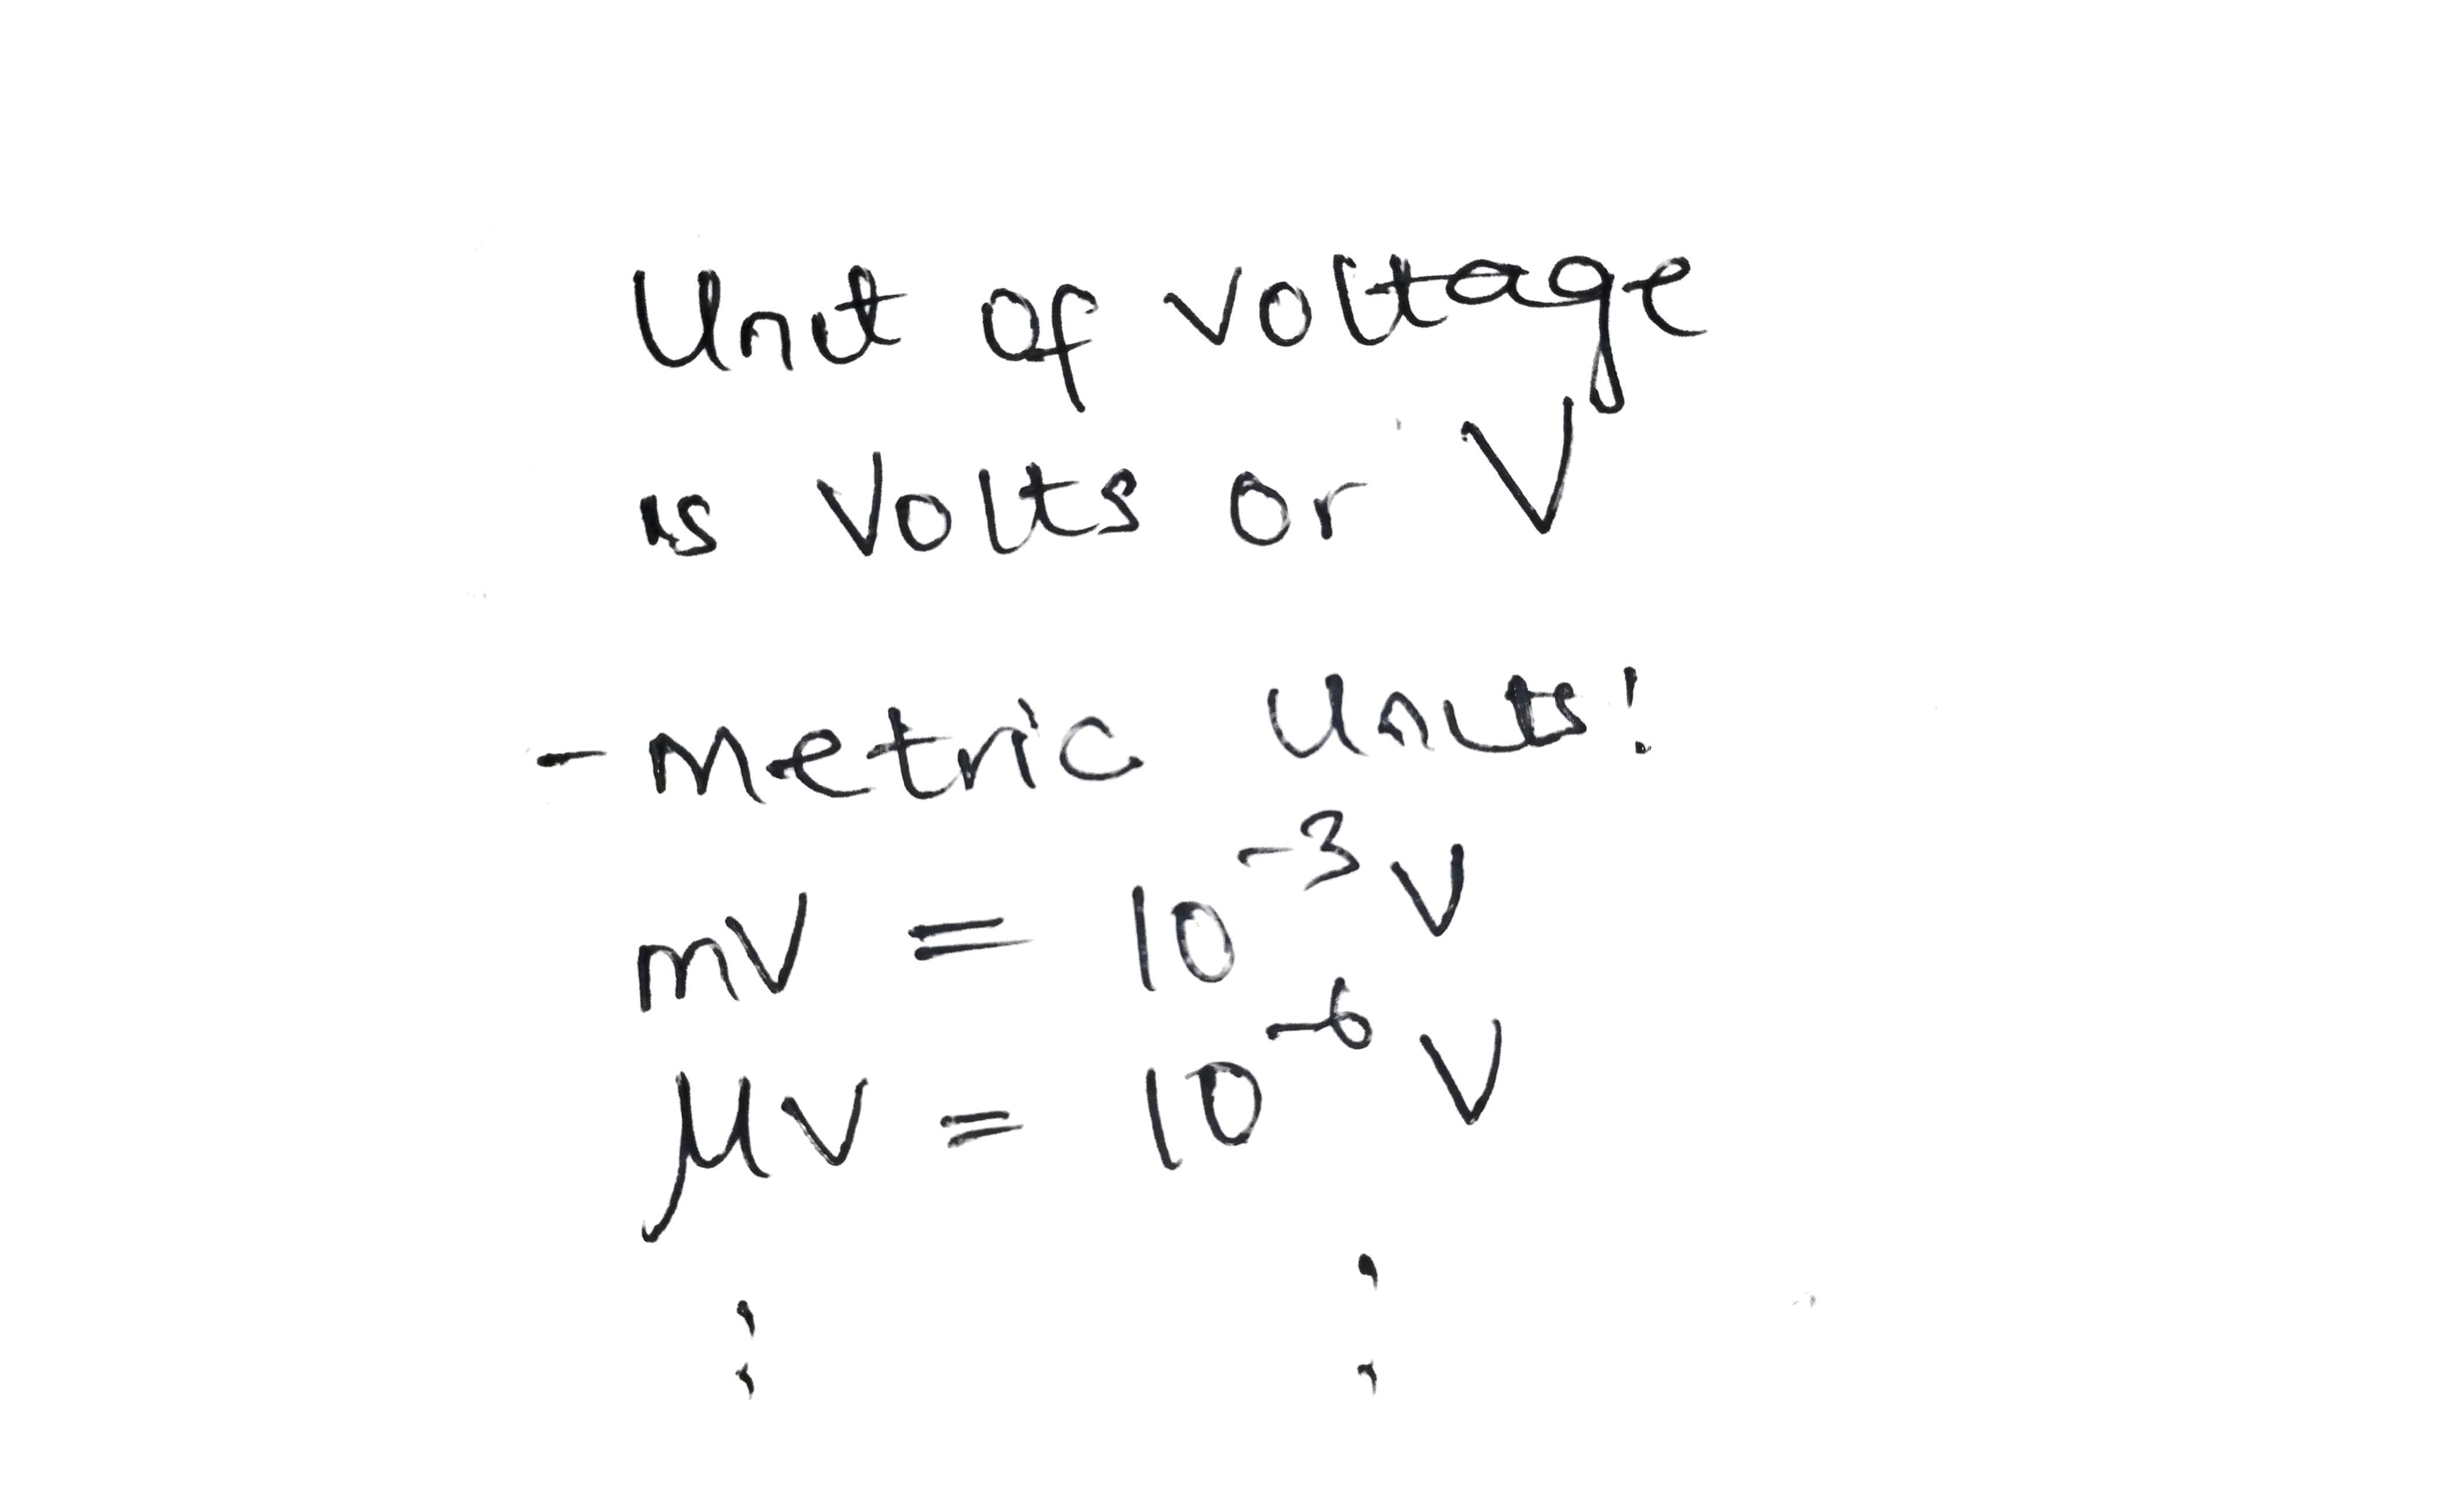 Unit of voltage
is Volts or V
- Metric Units!
mV = 10⁻³ V
μV = 10⁻⁶ V
:       :